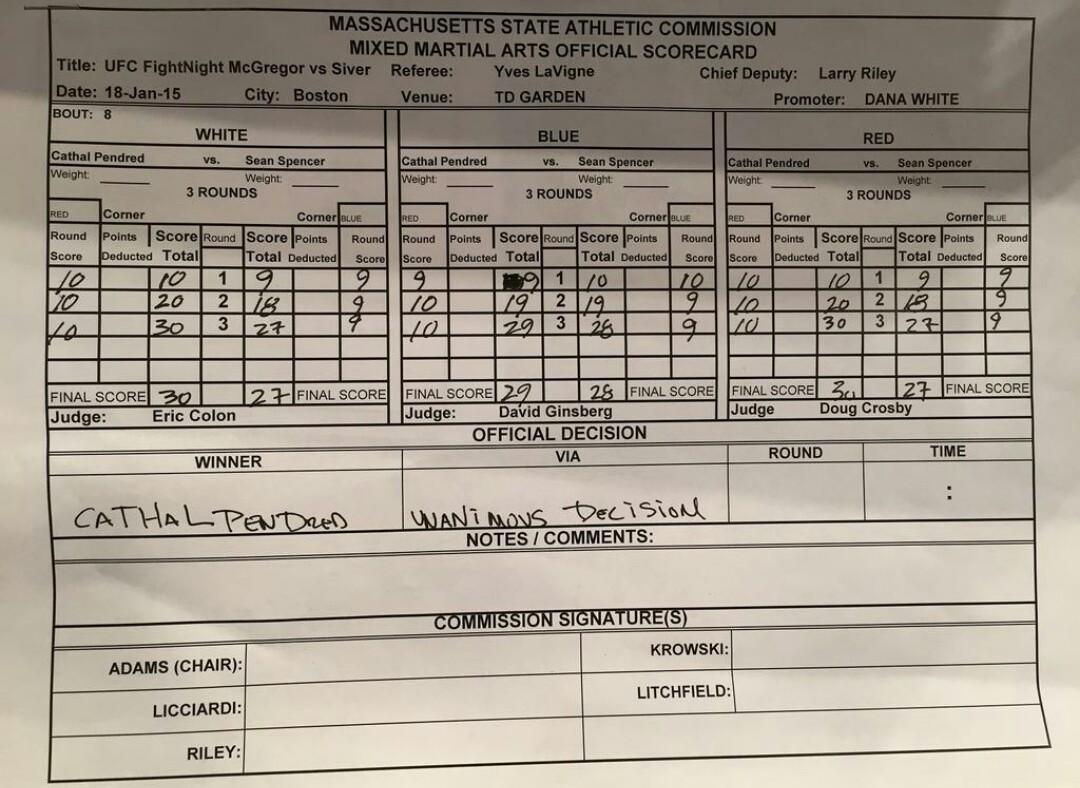 MASSACHUSETTS STATE ATHLETIC COMMISSION
MIXED MARTIAL ARTS OFFICIAL SCORECARD
Title: UFC FightNight McGregor vs Siver Referee: Yves LaVigne Chief Deputy: Larry Riley
Date: 18-Jan-15 City: Boston Venue: TD GARDEN Promoter: DANA WHITE
BOUT: 8
WHITE BLUE RED
Cathal Pendred vs. Sean Spencer Cathal Pendred vs. Sean Spencer Cathal Pendred vs. Sean Spencer
Weight: Weight: Weight: Weight: Weight: Weight:
3 ROUNDS 3 ROUNDS 3 ROUNDS
RED Corner Corner BLUE RED Corner Corner BLUE RED Corner Corner BLUE
Round Points Score Round Score Points Round Round Points Score Round Score Points Round Round Points Score Round Score Points Round
Score Deducted Total Total Deducted Score Score Deducted Total Total Deducted Score Score Deducted Total Total Deducted Score
10 10 1 9 9 9 9 1 10 10 10 10 1 9 9
10 20 2 18 9 10 19 2 19 9 10 20 2 18 9
10 30 3 27 9 10 29 3 28 9 10 30 3 27 9
FINAL SCORE 30 27 FINAL SCORE FINAL SCORE 29 28 FINAL SCORE FINAL SCORE 30 27 FINAL SCORE
Judge: Eric Colon Judge: David Ginsberg Judge Doug Crosby
OFFICIAL DECISION
WINNER VIA ROUND TIME
:
CATHAL PENDRED UNANIMOUS DECISION
NOTES / COMMENTS:
COMMISSION SIGNATURE(S)
ADAMS (CHAIR): KROWSKI:
LICCIARDI: LITCHFIELD:
RILEY: